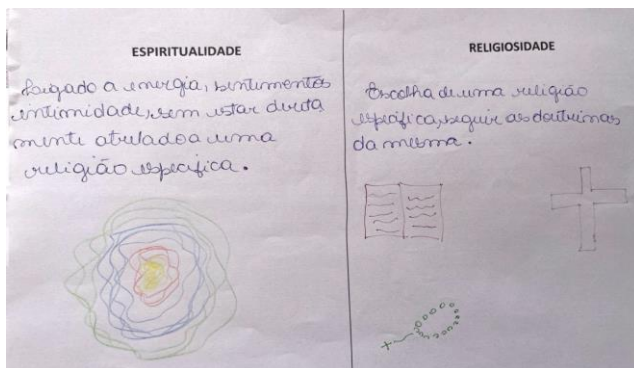 ESPIRITUALIDADE
Ligado a energia, sentimentos
intimidade, sem estar direta
mente atrelado a uma
religião específica.
RELIGIOSIDADE
Escolha de uma religião
específica, seguir as doutrinas
da mesma.